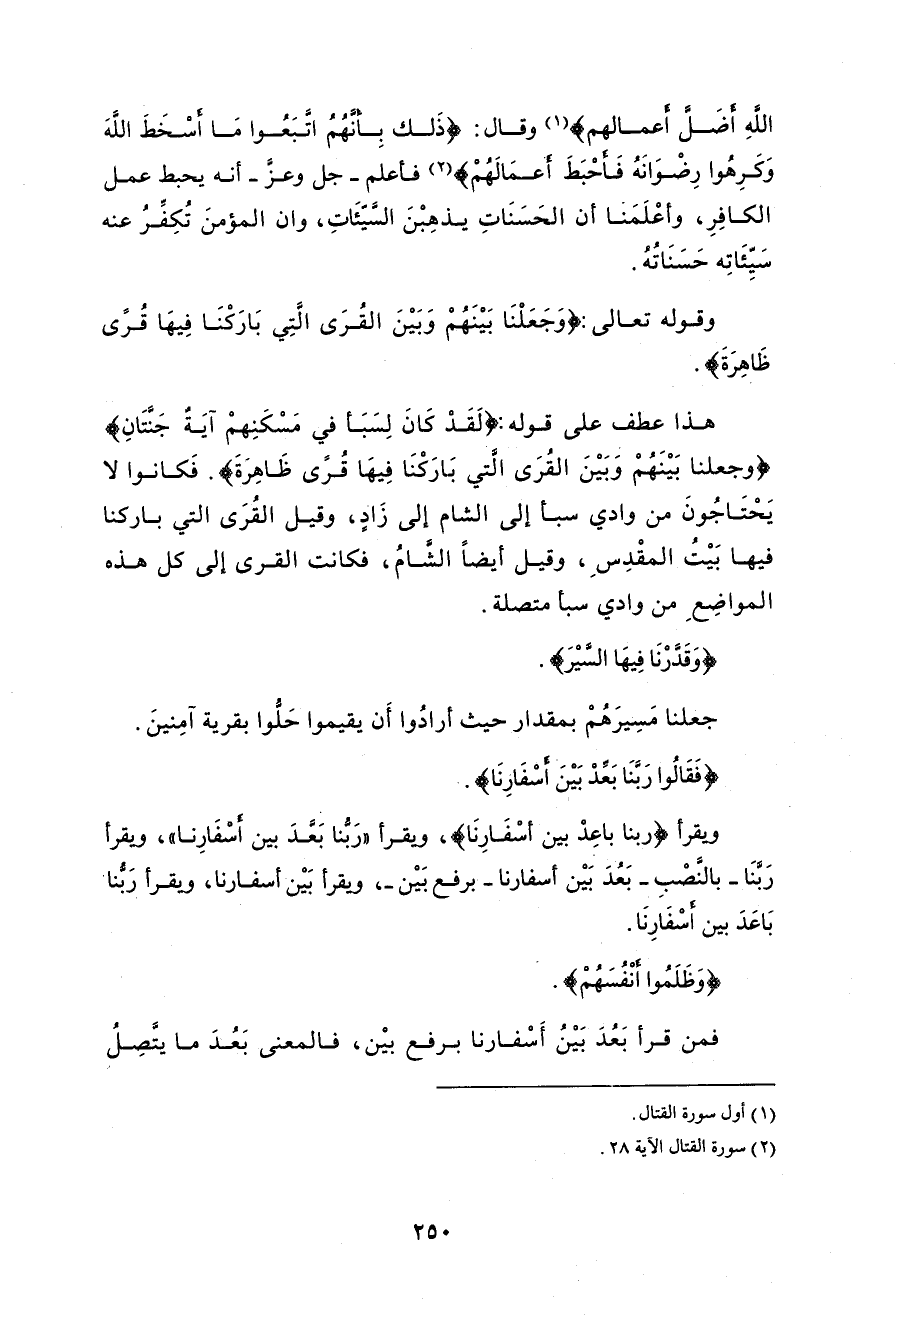 اللَّهِ أَضَلَّ أَعمالهم﴾(١) وقال: ﴿ذَلك بِأَنَّهُمُ اتَّبَعُوا مَا أَسْخَطَ اللَّهَ
وَكَرِهُوا رِضْوَانَهُ فَأَحْبَطَ أَعمَالَهُمْ﴾(٢) فأعلم ـ جل وعزَّ ـ أنه يحبط عمل
الكافِرِ، وأعْلَمَنا أن الحَسَنَاتِ يذهِبْنَ السَّيِّئَاتِ، وان المؤمنَ تُكَفِّرُ عنه
سَيِّئَاتِه حَسَنَاتُهُ.
وقوله تعالى:﴿وَجَعَلْنَا بَيْنَهُمْ وَبَيْنَ القُرَى الَّتِي بَارَكْنَا فِيهَا قُرًى
ظَاهِرَةً﴾.
هذا عطف على قوله:﴿لَقَدْ كَانَ لِسَبَأ في مَسْكَنِهِمْ آيَةٌ جَنَّتَانِ﴾
﴿وجعلنا بَيْنَهُمْ وَبَيْنَ القُرَى الَّتي بَارَكْنَا فِيهَا قُرًى ظَاهِرَةً﴾. فَكانوا لا
يَحْتَاجُونَ من وادي سبأ إلى الشام إلى زَادٍ، وقيل القُرَى التي باركنا
فيها بَيْتُ المقْدِسِ، وقيل أيضاً الشَّامُ، فكانت القرى إلى كل هذه
المواضِعِ من وادي سبأ متصلة.
﴿وَقَدَّرْنَا فِيهَا السَّيْرَ﴾.
جعلنا مَسِيرَهُمْ بمقدار حيث أرادُوا أَن يقيموا حَلُّوا بقرية آمِنينَ.
﴿فَقَالُوا رَبَّنَا بَعِّدْ بَيْنَ أَسْفَارِنَا﴾.
ويقرأ ﴿ربنا باعِدْ بين أسْفَارِنَا﴾، ويقرأ «رَبُّنا بَعَّدَ بين أَسْفَارِنا»، ويقرأ
رَبَّنَا ـ بالنَّصْبِ ـ بَعُدَ بَيْنُ أسفارنا ـ برفعِ بَيْن ـ، ويقرأ بَيْنَ أسفارنا، ويقرأ رَبُّنا
بَاعَدَ بين أَسْفَارِنَا.
﴿وَظَلَمُوا أَنْفُسَهُمْ﴾.
فمن قرأ بَعُدَ بَيْنُ أَسْفارنا برفع بيْن، فالمعنى بَعُدَ ما يتَّصِلُ
(١) أول سورة القتال.
(٢) سورة القتال الآية ٢٨.
٢٥٠